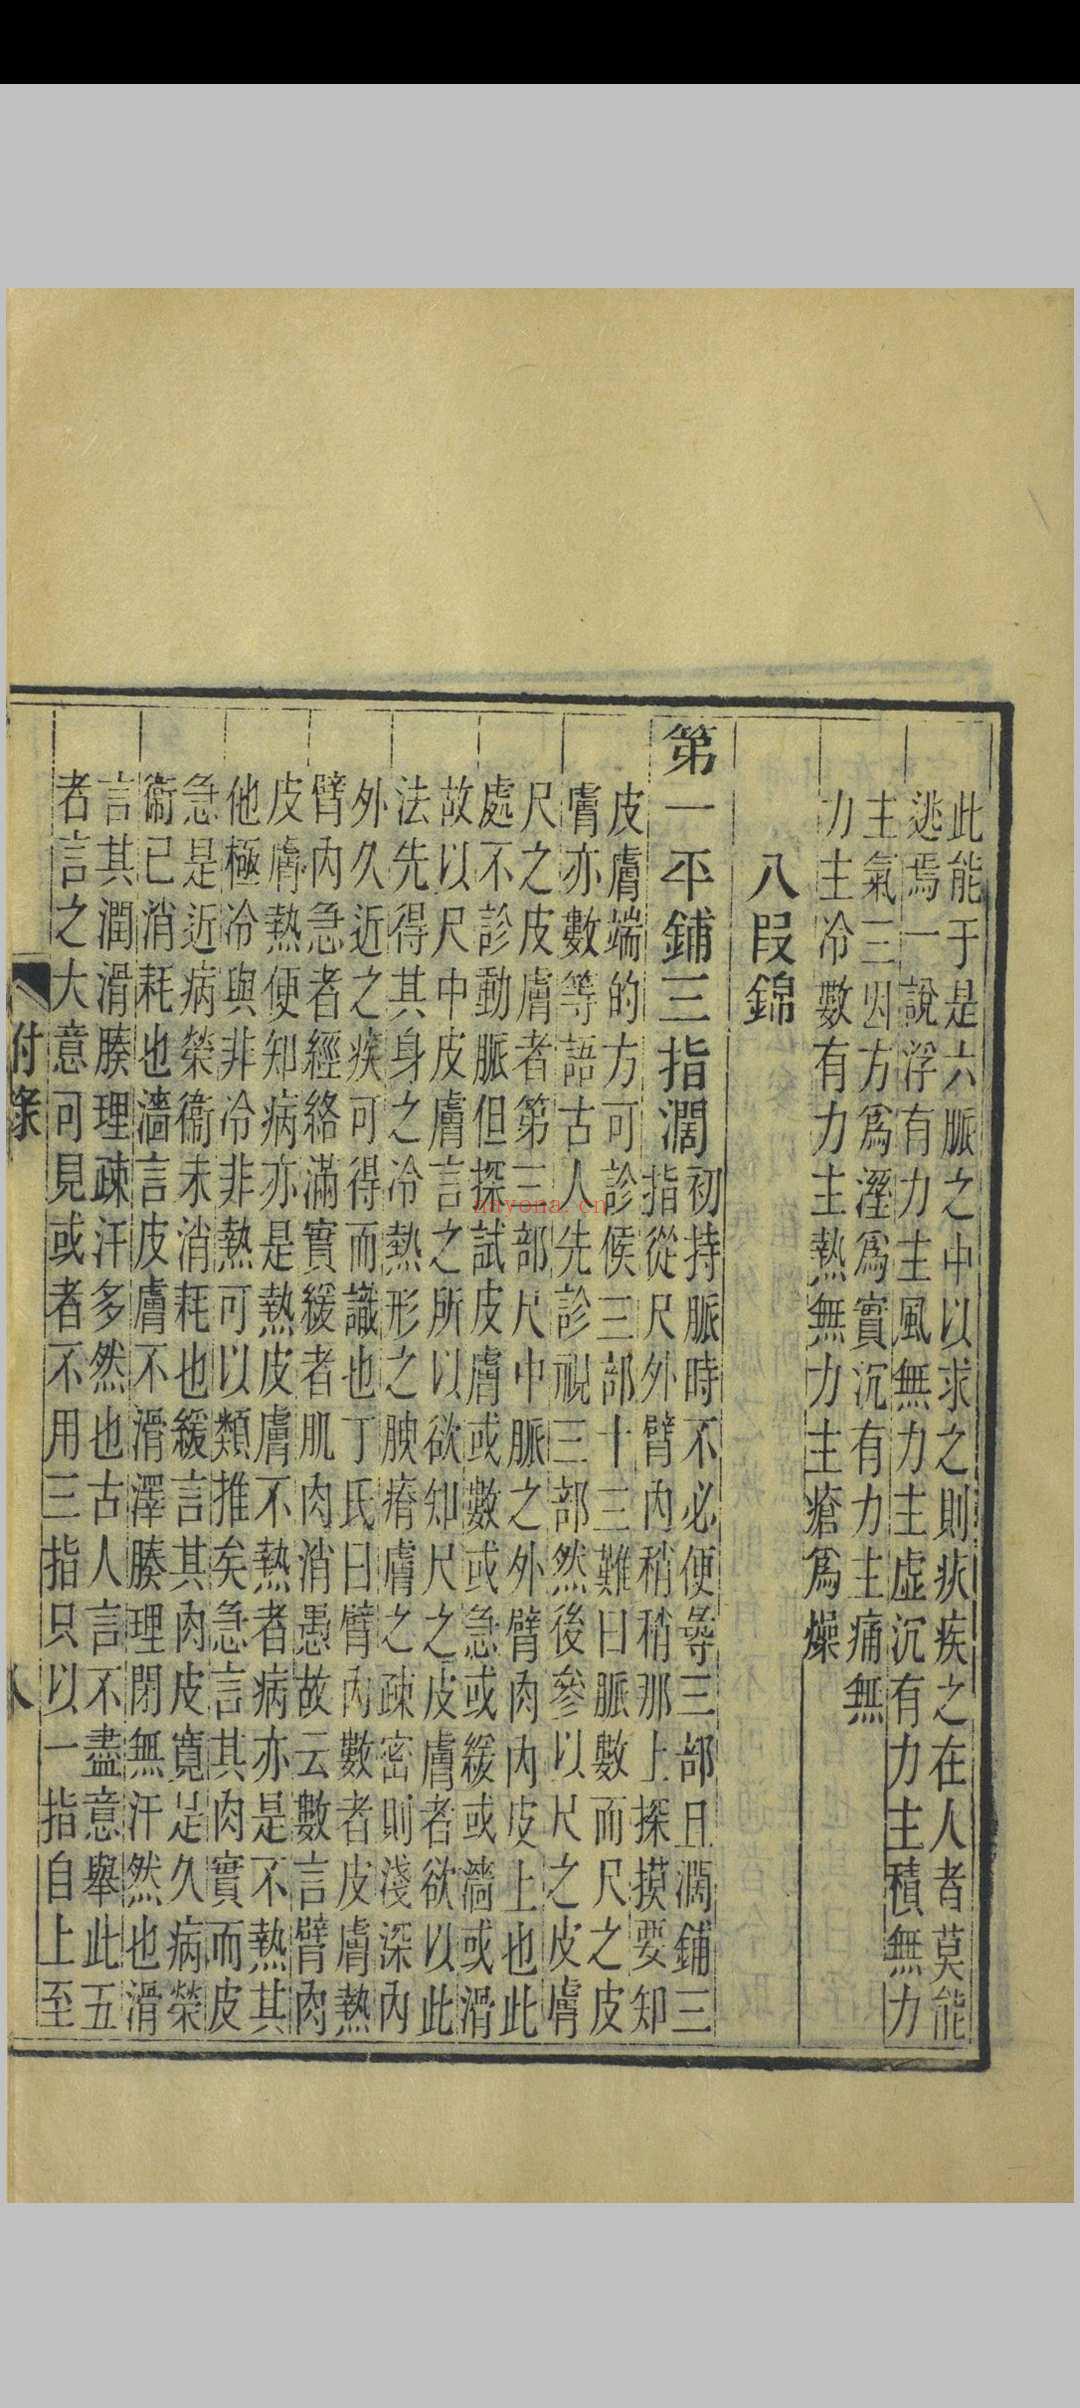 此能于是六脈之中以求之則疾疾之在人者莫能
逃焉一說浮有力主風無力主虛沉有力主積無力
主氣三因方爲溼爲實沉有力主痛無
力主冷數有力主熱無力主瘡爲燥
八段錦
第一平鋪三指濶
初持脈時不必便尋三部且濶鋪三
指從尺外臂內稍稍那上探摸要知
皮膚端的方可診候三部十三難曰脈數而尺之皮
膚亦數等語古人先診視三部然後參以尺之皮膚
尺之皮膚者第三部尺中脈之外臂肉內皮上也此
處不診動脈但探試皮膚或數或急或緩或濇或滑
故以尺中皮膚言之所以欲知尺之皮膚者欲以此
法先得其身之冷熱形之腴瘠膚之疎密則淺深內
外久近之疾可得而識也丁氏曰臂內數者皮膚熱
臂內急者經絡滿實緩者肌肉消愚故云數言臂肉
皮膚熱便知病亦是熱皮膚不熱者病亦是不熱其
他極冷與非冷非熱可以類推矣急言其肉實而皮
急是近病榮衞未消耗也緩言其肉皮寬是久病榮
衞已消耗也濇言皮膚不滑澤腠理閉無汗然也滑
言其潤滑腠理疎汗多然也古人言不盡意舉此五
者言之大意可見或者不用三指只以一指自上至
付彔
nayona.cn